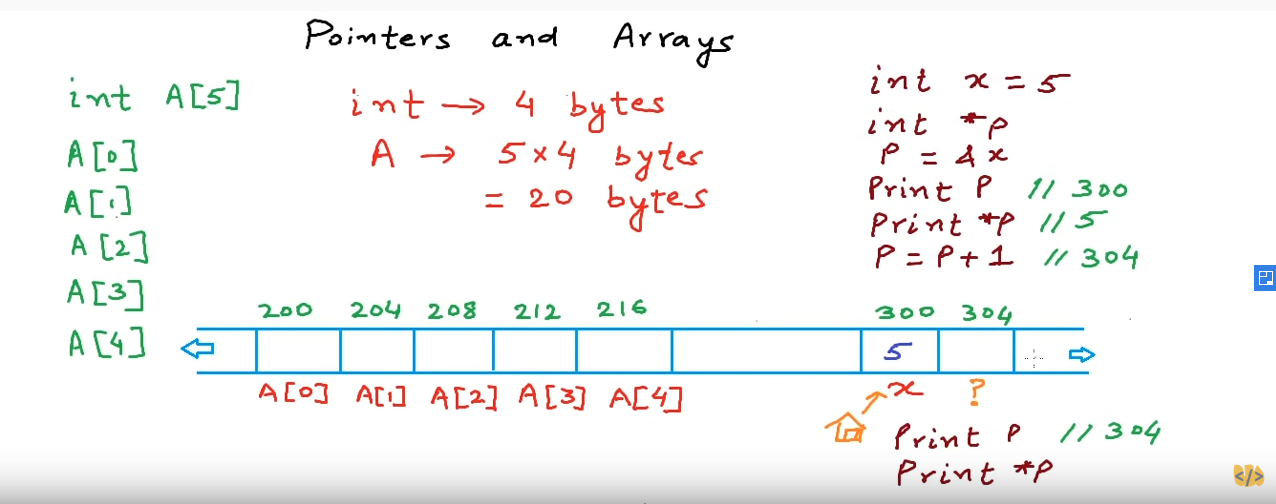 Pointers and Arrays
int A[5]
A[0]
A[1]
A[2]
A[3]
A[4]
int → 4 bytes
A → 5×4 bytes
= 20 bytes
int x = 5
int *p
P = &x
Print P // 300
Print *P // 5
P = P+1 // 304
200 204 208 212 216 300 304
5
A[0] A[1] A[2] A[3] A[4] x ?
Print P // 304
Print *P
</>